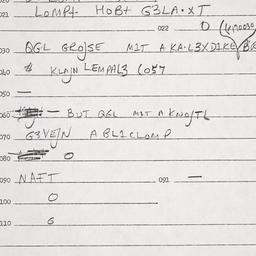 021 LOMPT HOBT G3LA.XT
022 0
030 QGL GROJSE MIT A KA.L3XD1KE
040 KLAJN LEMPAL3 (057
050 —
060 — BUT QGL MIT A KNOJTL
070 G3VEJN A BL1CLOMP
080 0
090 NAFT 091 —
100 0
110 G